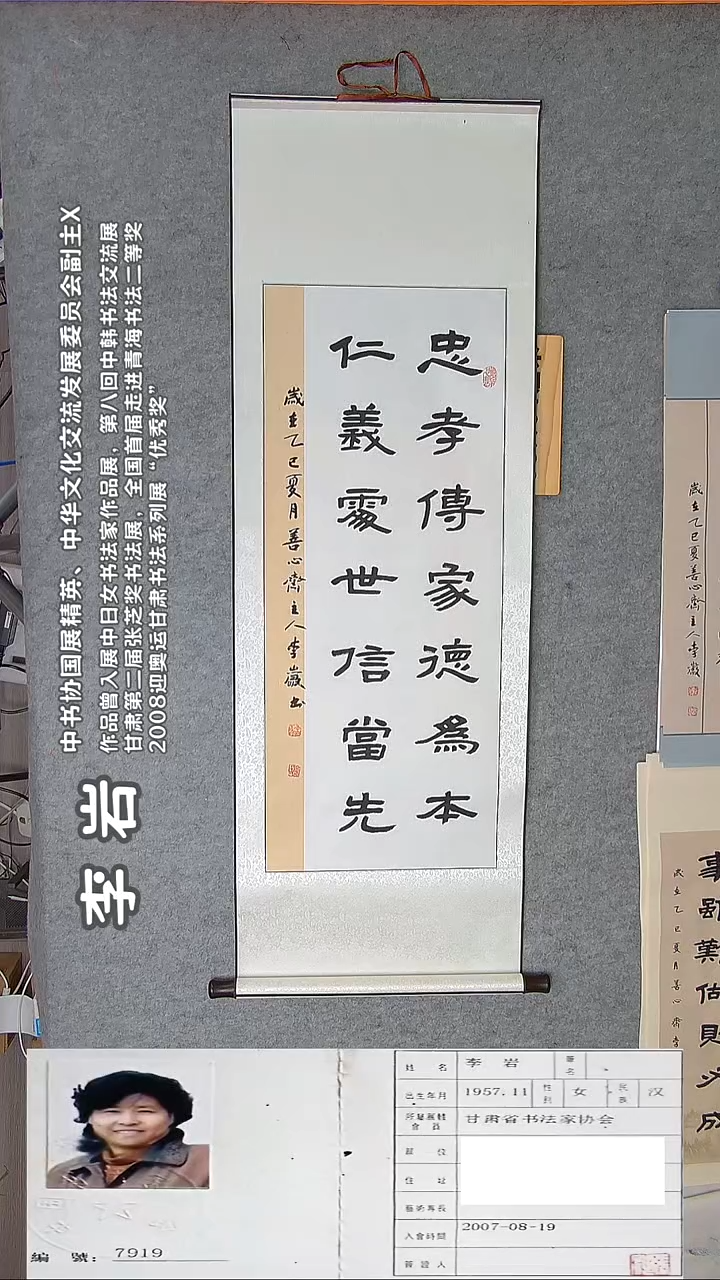 忠孝傳家德為本
仁義處世信當先
歲在乙巳夏月善心齋主人李巖書
中书协国展精英、中华文化交流发展委员会副主X
作品曾入展中日女书法家作品展,第八回中韩书法交流展
甘肃第二届张芝奖书法展,全国首届走进青海书法二等奖
2008迎奥运甘肃书法系列展“优秀奖”
李岩
歲在乙巳夏善心齋主人李巖
事雖難做則必成
歲在乙巳夏月善心齋
姓名 李岩
出生年月 1957.11 性别 女 民族 汉
甘肃省书法家协会
部位
住址
藝術專長
入會時間 2007-08-19
簽證人
編號: 7919